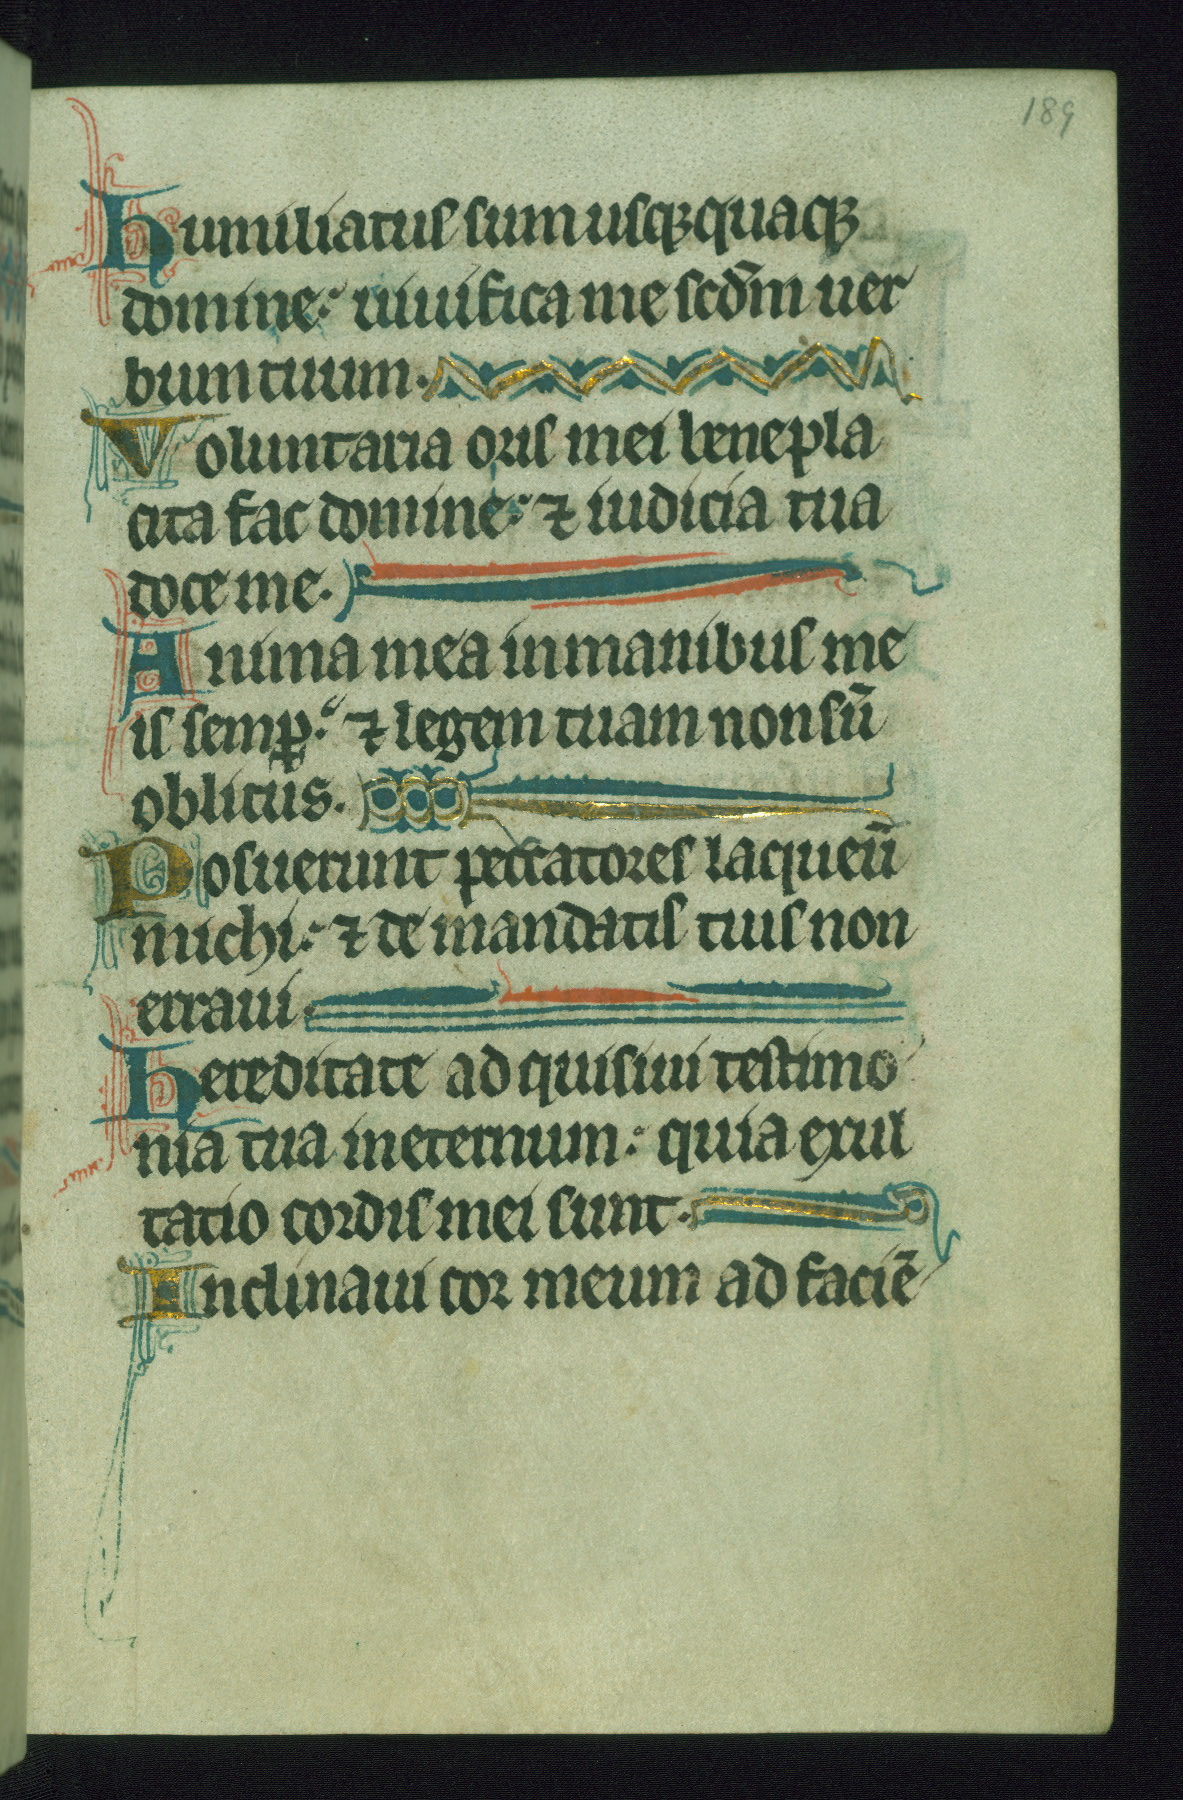 189
Humiliatus sum usq;quaq;
domine: uiuifica me scd̄m uer
bum tuum.
Voluntaria oris mei benepla
cita fac domine: ⁊ iudicia tua
doce me.
Anima mea in manibus me
is semꝑ: ⁊ legem tuam non sū
oblitus.
Posuerunt peccatores laqueū
michi: ⁊ de mandatis tuis non
erraui.
Hereditate adquisiui testimo
nia tua ineternum: quia exul
tatio cordis mei sunt.
Inclinaui cor meum ad faciē